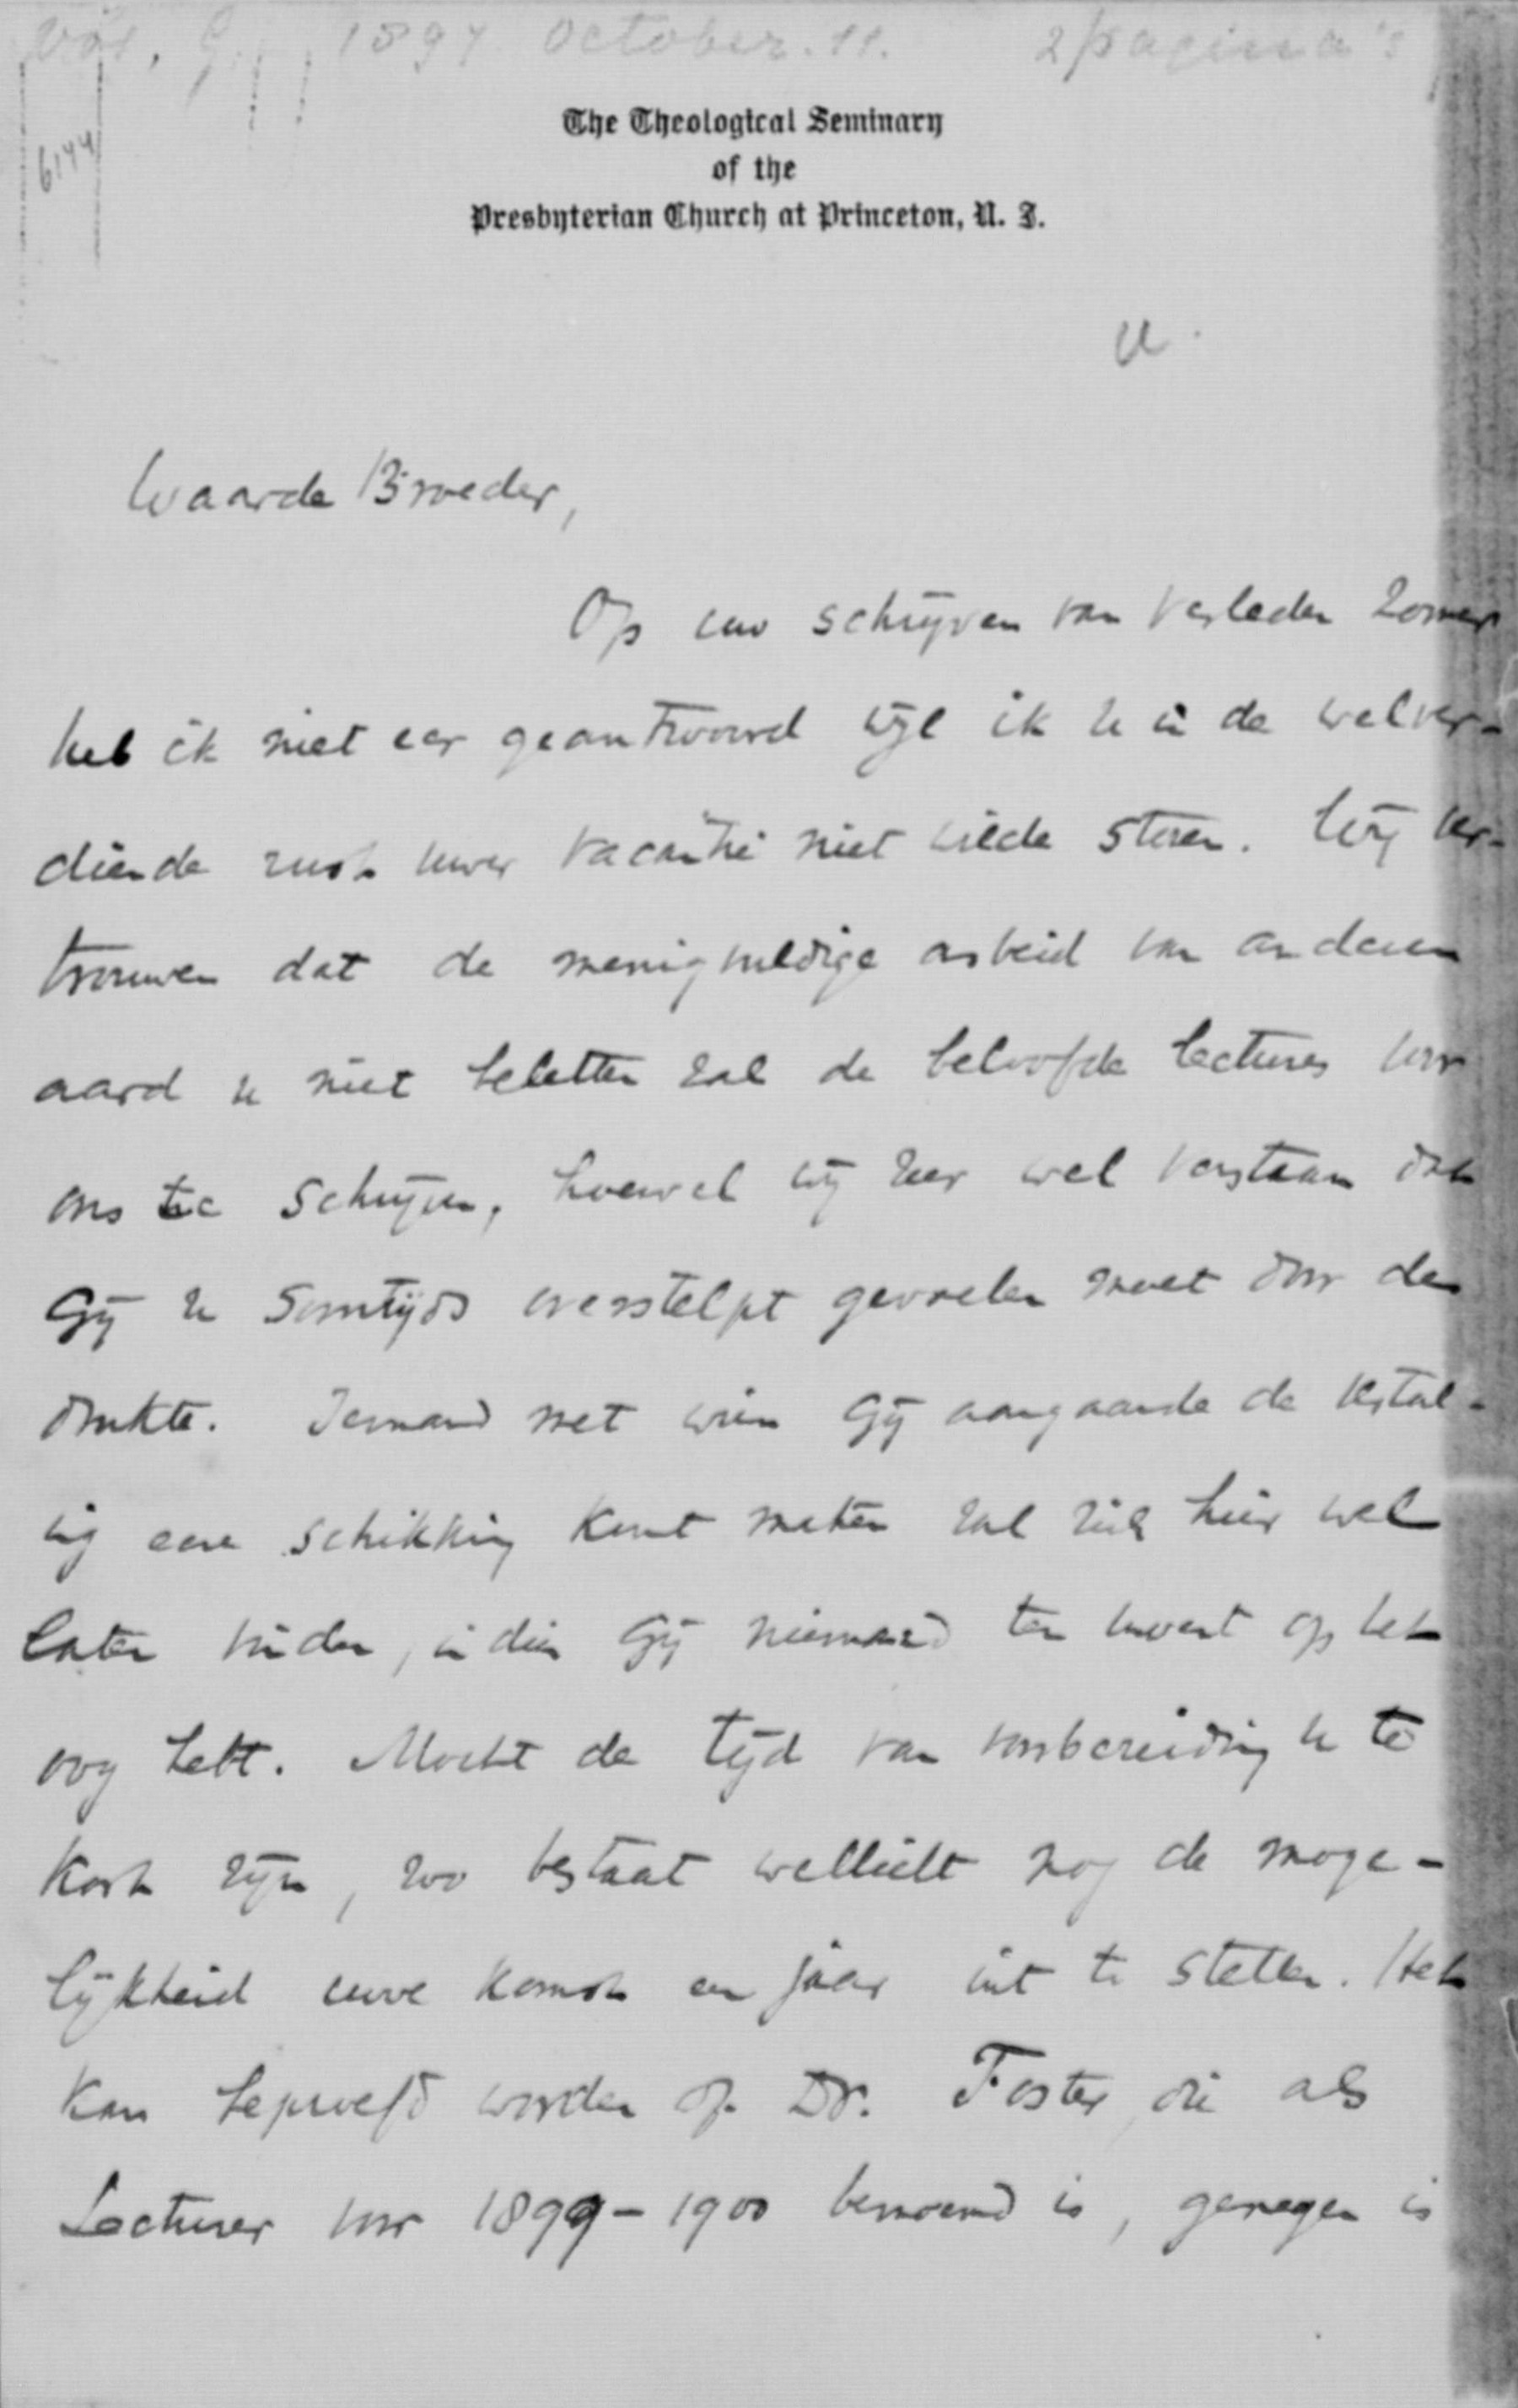 Vos, G. 1897 October. 11. 2 pagina's
6144
The Theological Seminary
of the
Presbyterian Church at Princeton, N. J.
U.
Waarde Broeder,
Op uw schrijven van verleden zomer
heb ik niet eer geantwoord wijl ik u in de welver-
diende rust uwer vacantie niet wilde storen. Wij ver-
trouwen dat de menigvuldige arbeid van anderen
aard u niet beletten zal de beloofde lectures voor
ons te schrijven, hoewel wij zeer wel verstaan dat
Gij u somtijds overstelpt gevoelen moet door de
drukte. Iemand met wien Gij aangaande de vertal-
ing eene schikking kunt maken zal zich hier wel
laten vinden, indien Gij niemand ten uwent op het
oog hebt. Mocht de tijd van voorbereiding u te
kort zijn, zoo bestaat wellicht nog de moge-
lijkheid uwe komst een jaar uit te stellen. Het
kan beproefd worden of Dr. Foster, die als
Lecturer voor 1899-1900 benoemd is, genegen is